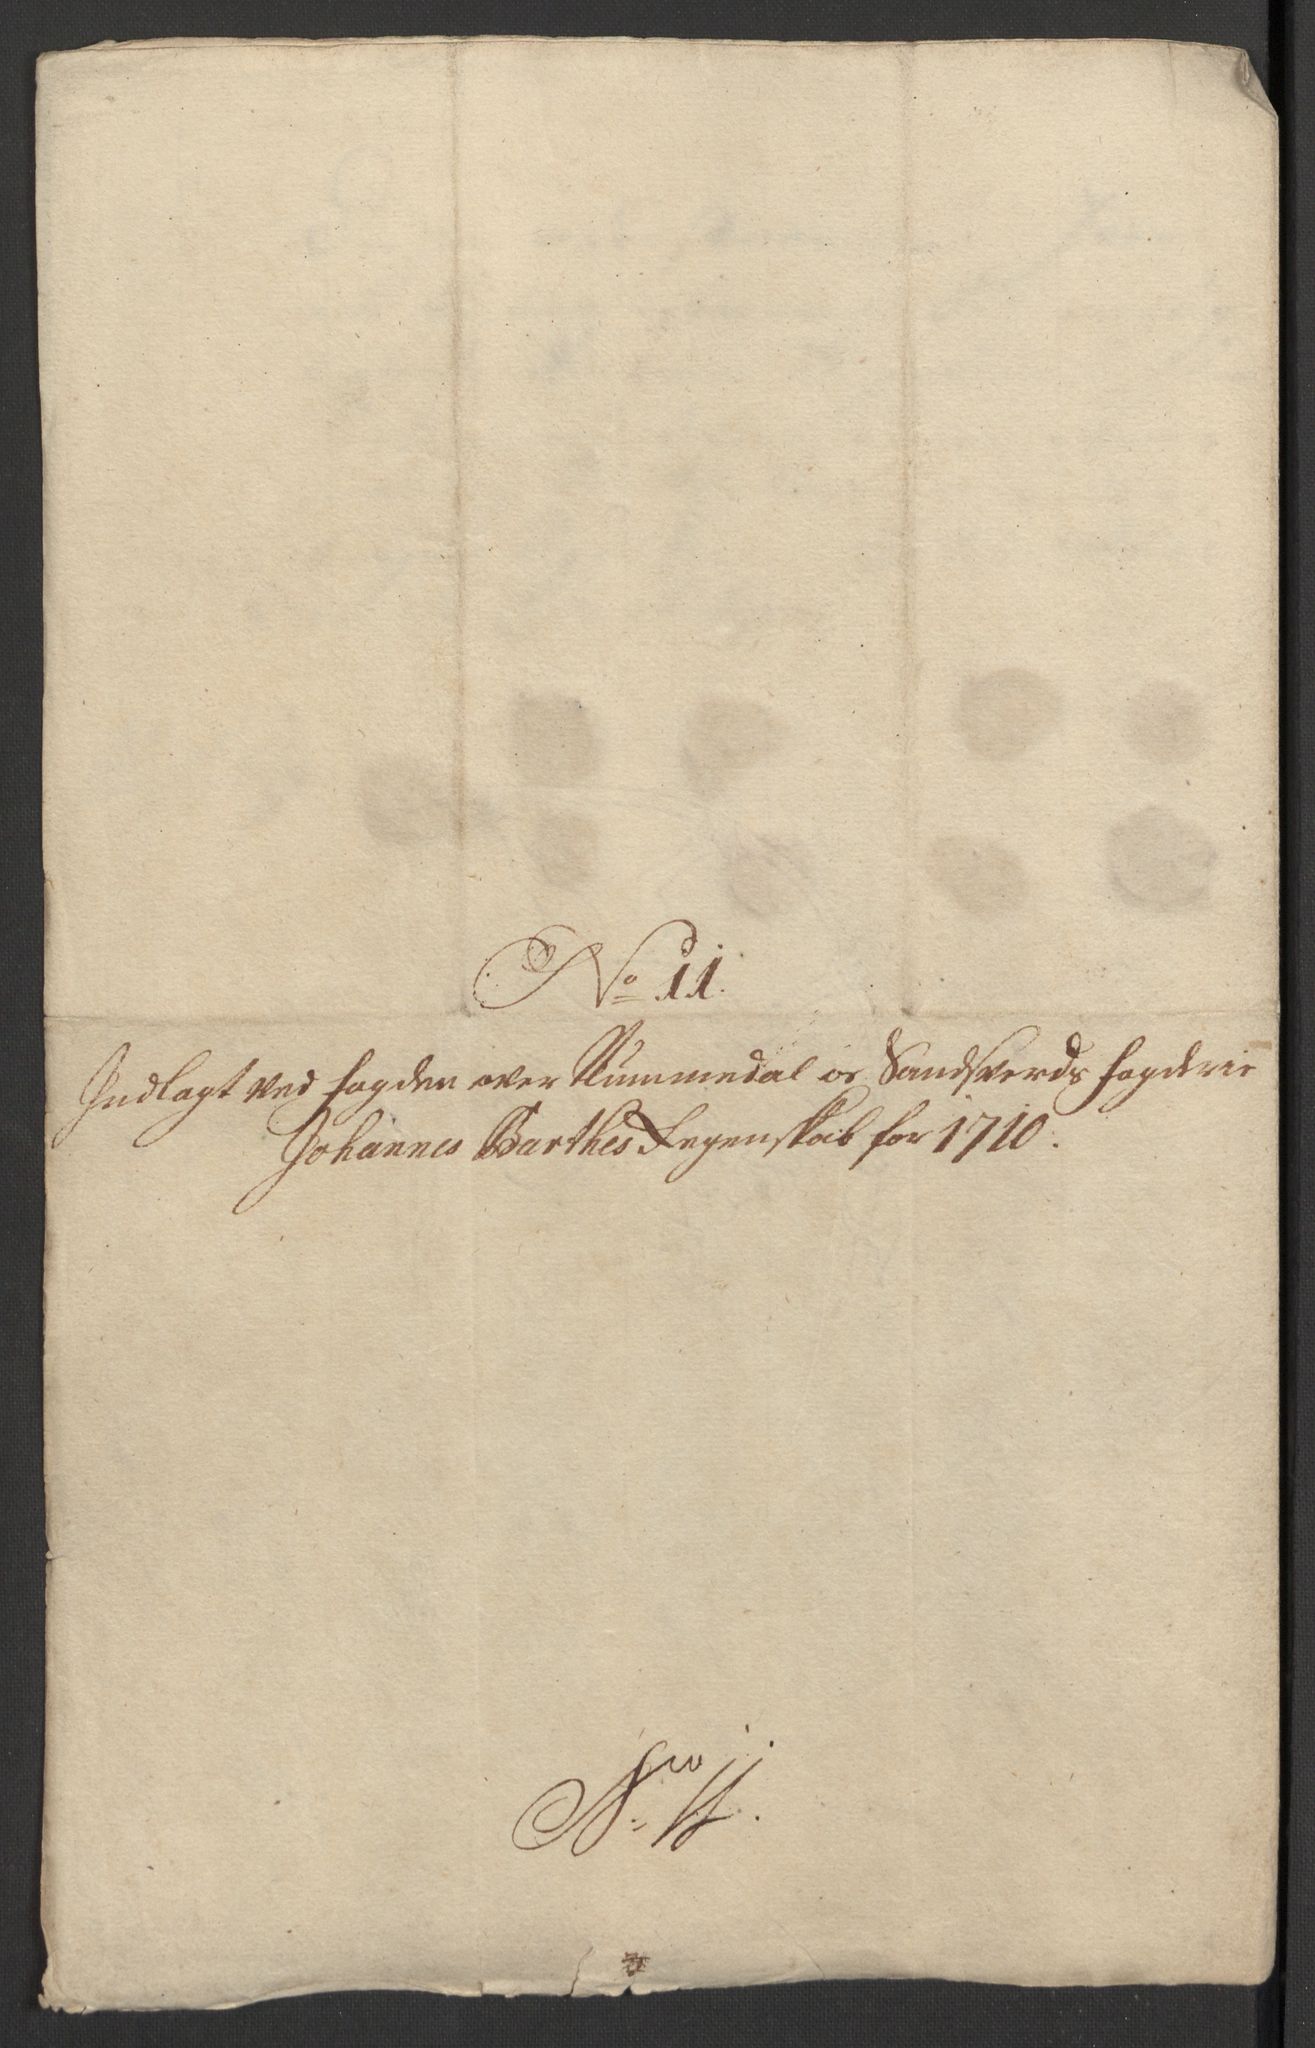 No 11.
Indlagt ved fogden over Nummedal oc Sandsverds fogderie
Johannes Barthes Regenskab for 1710.
No 11.